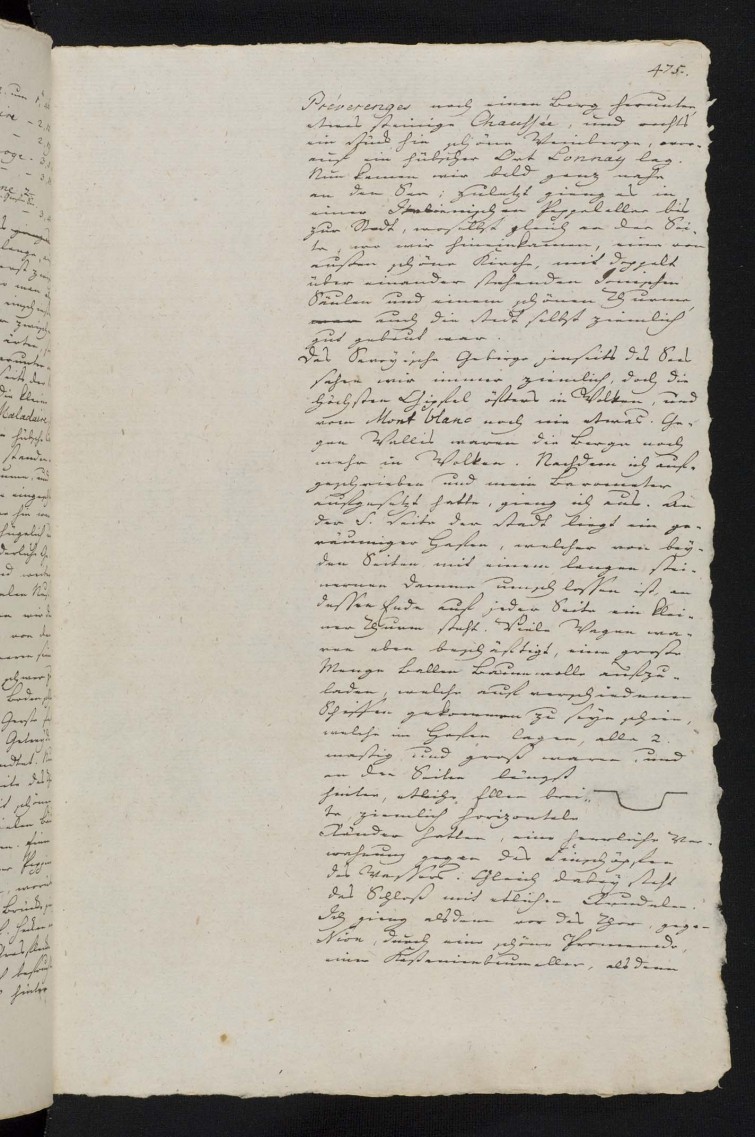 475.
Préverenges noch einen Berg herunter,
etwas steinige Chaussée, und rechts
ein Stück hin schöne Weinberge, wor-
auf ein hübscher Ort Lonnay lag.
Nun kamen wir bald ganz nahe
an den See; zuletzt gieng es in
einer Italienischen Pappelallee bis
zur Stadt, woselbst gleich an der Sei-
te, wo wir hineinkamen, eine von
außen schöne Kirche, mit doppelt
über einander stehenden Ionischen
Säulen und einem schönen Thurme,
war auch die Stadt selbst ziemlich
gut gebaut war.
Das Savoyische Gebirge jenseits des Sees
sahen wir immer ziemlich, doch die
höchsten Gipfel öfters in Wolken, und
vom Mont blanc noch nie etwas. Ge-
gen Wallis waren die Berge noch
mehr in Wolken. Nachdem ich auf-
geschrieben und mein Barometer
aufgesetzt hatte, gieng ich aus. An
der S. Seite der Stadt liegt ein ge-
räumiger Hafen, welcher von bey-
den Seiten mit einem langen stei-
nernen Damme umschlossen ist, an
dessen Ende auf jeder Seite ein klei-
ner Thurm steht. Viele Wagen wa-
ren eben beschäftigt, eine große
Menge Ballen Baumwolle aufzu-
laden, welche auf verschiedenen
Schiffen gekommen zu seyn schien,
welche im Hafen lagen, alle 2
mastig und groß waren, und
an den Seiten längst
hinten, etliche Ellen brei-
te, ziemlich horizontale
Ränder hatten, eine herrliche Ver-
wahrung gegen das Einschöpfen
des Wassers. Gleich dabey steht
das Schloß mit etlichen Rundelen.
Ich gieng alsdann vor das Thor gegen
Nion, durch eine schöne Promenade,
eine Kastanienbaumallee, alsdann